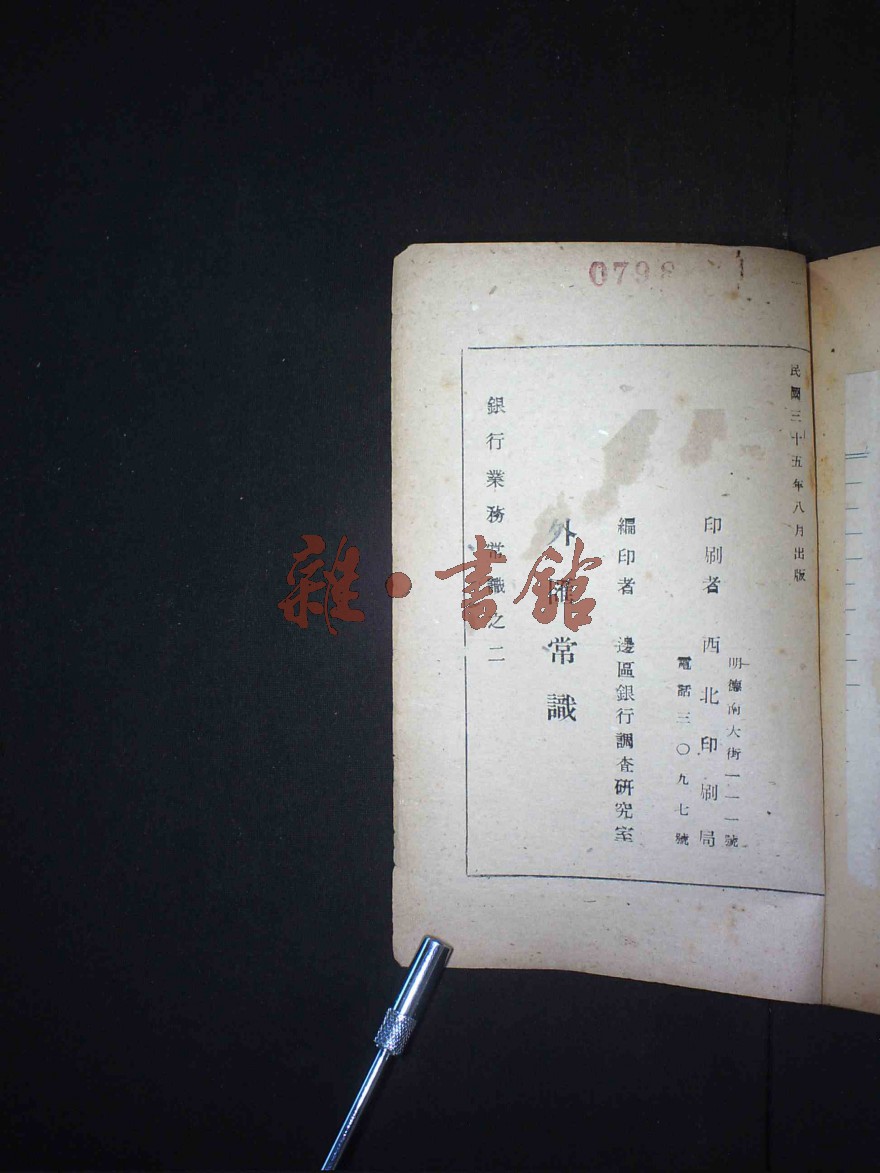 0798 1
民國三十五年八月出版
明德南大街一一一號
印刷者 西北印刷局
電話三〇九七號
編印者 邊區銀行調查研究室
外匯常識
銀行業務常識之二
雜·書館